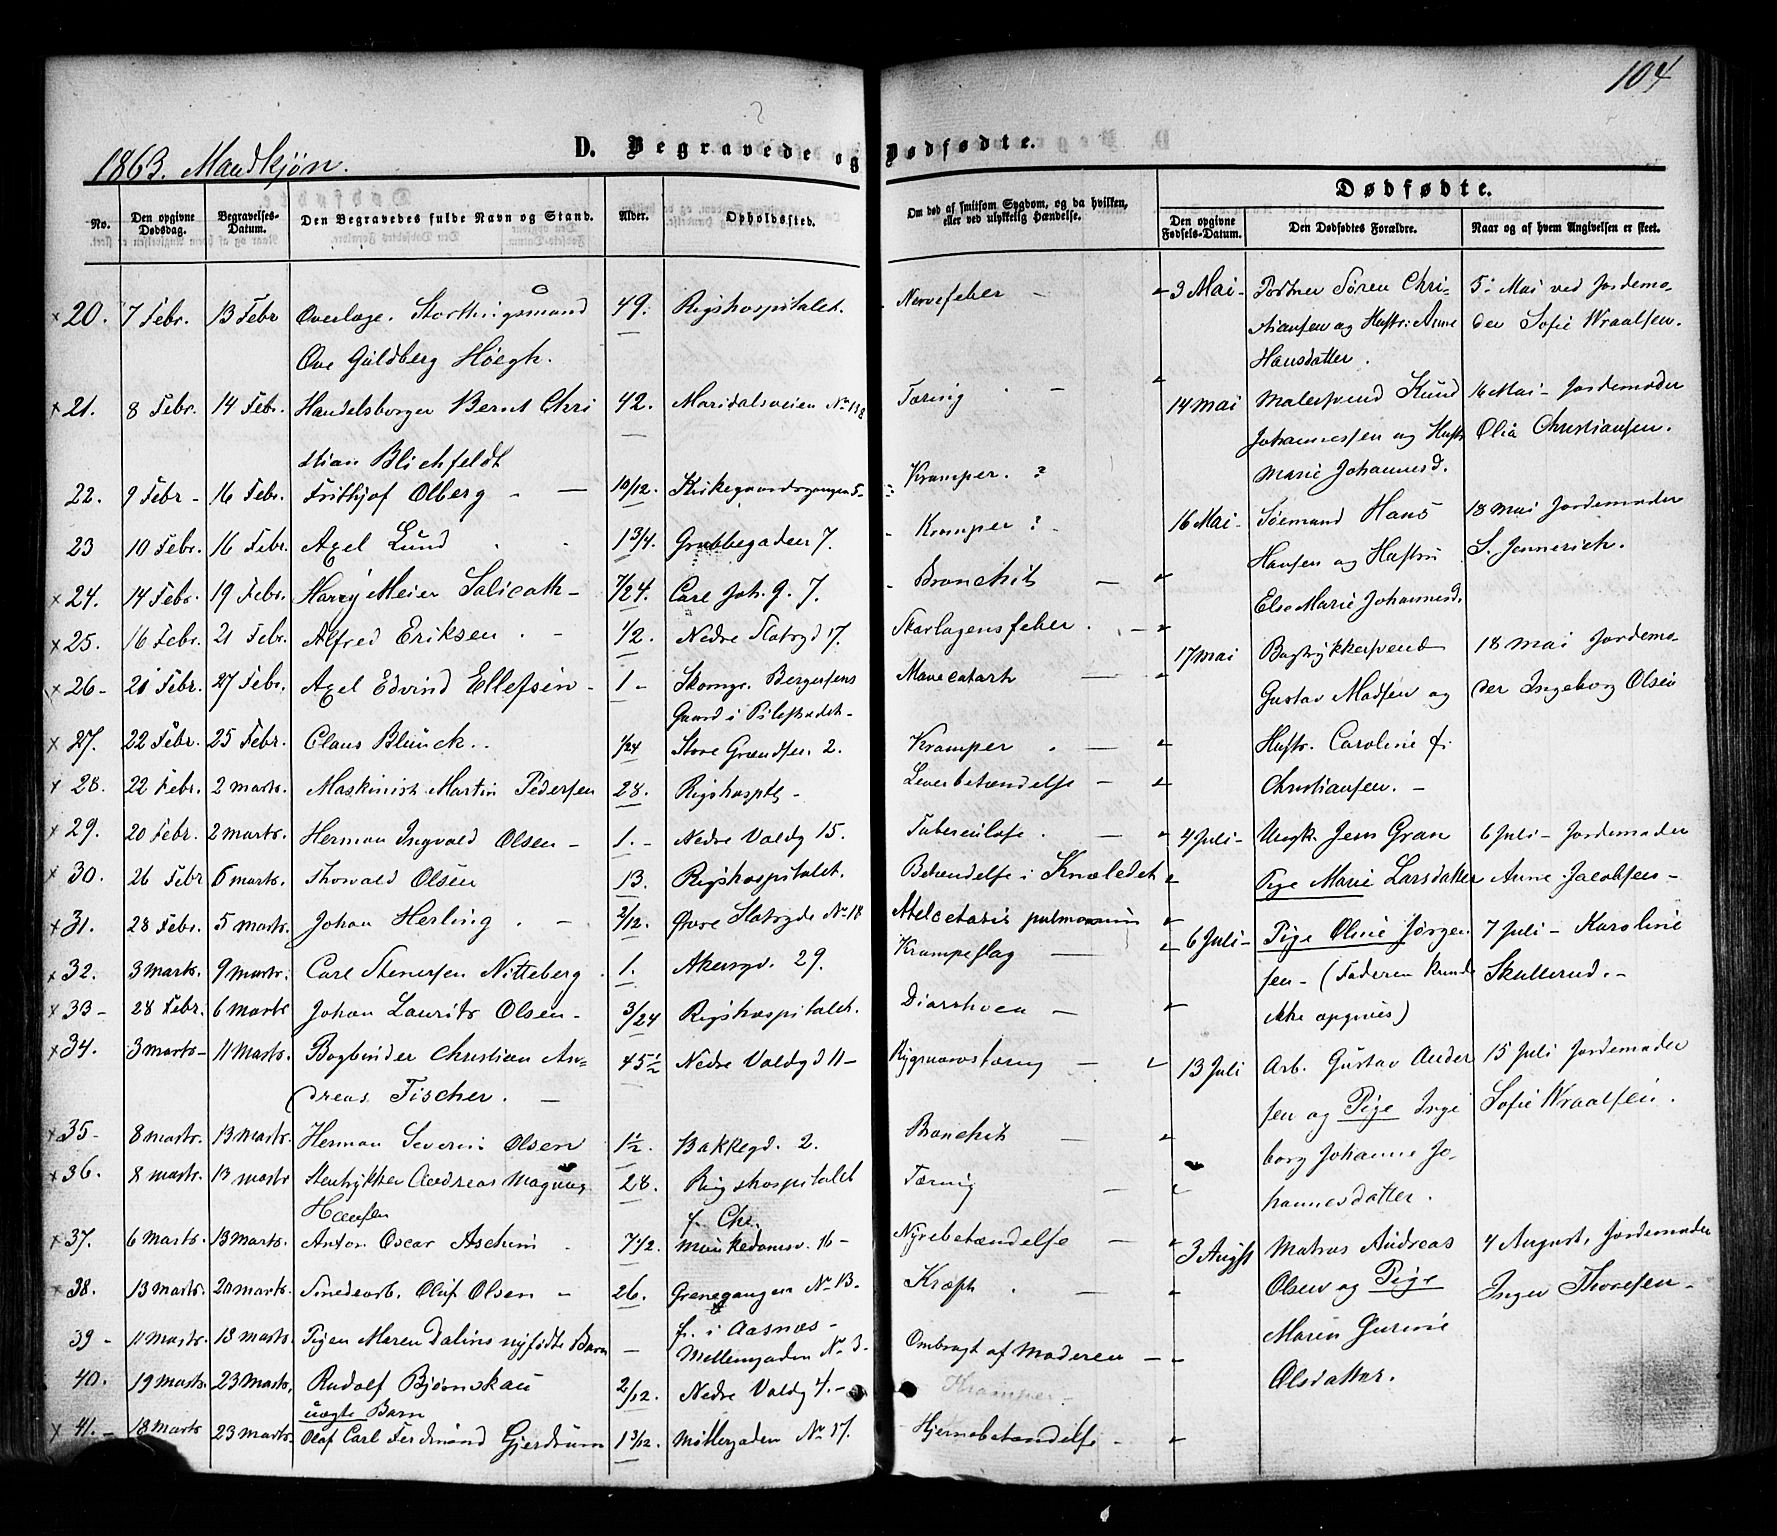 104
1863. Mandkjøn.
D. Begravede og Dødfødte.
No.
Den opgivne Dødsdag.
Begravelses-Datum.
Den Begravedes fulde Navn og Stand.
Alder.
Opholdssted.
Om død af smitsom Sygdom, og da hvilken, eller ved ulykkelig Hændelse.
Dødfødte.
Den opgivne Fødsels-Datum.
Den Dødfødtes Forældre.
Naar og af hvem Angivelsen er skeet.
× 20. 7 Febr. 13 Febr Overlæge. Storthingsmand 49. Rigshospitalet. Nervefeber —
Ove Guldberg Høegh.
× 21. 8 Febr. 14 Febr. Handelsborger Bernt Chri 42. Maridalsveien No 118 Tæring —
stian Blichfeldt
22. 9 Febr - 16 Febr. Frithjof Olberg — 10/12. Kirkegaardsgangen 5 - Kramper. ?
23 10 Febr. 16 Febr. Axel Lund 1 3/4. Grubbegaden 7. Kramper ?
× 24. 14 Febr. 19 Febr. Harry Meier Salicath - 7/24. Carl Joh. g. 7. Bronchit —
× 25. 16 Febr. 21 Febr. Alfred Eriksen - 1/2. Nedre Slotsgd 17. Skarlagensfeber. —
× 26 - 21 Febr. 27 Febr. Axel Edvind Ellefsen - 1 - Skomg. Bergersens Mavecatarh —
Gaard i Pilestrædet -
× 27. 22 Febr. 25 Febr. Claus Blunck. 1/24 Store Grændsen. 2. Kramper —
× 28. 22 Febr. 2 marts. Maskinist Martin Pedersen 28. Rigshosptl - Leverbetændelse —
× 29. 20 Febr. 2 marts. Herman Ingvald Olsen - 1. - Nedre Voldg 15. Tuberculose. —
× 30. 26 Febr 6 marts. Thorvald Olsen 13. Rigshospitalet. Betændelse i Knæledet
× 31. 28 Febr. 5 marts. Johan Herling. — 2/12. Øvre Slotsgde No 18 Atelectasis pulmonum
× 32. 3 marts. 9 marts. Carl Stenersen Nitteberg 1. Akersgd. 29. Krampeslag —
× 33 - 28 Febr. 6 marts Johan Laurits Olsen - 3/24 Rigshospitalet. Diarrhoea —
× 34. 3 marts - 11 Marts. Bogbinder Christian An- 45 1/2 Nedre Voldgd 11 - Rygmarvstæring —
dreas Fischer. —
× 35 - 8 marts. 13 marts. Herman Severin Olsen 1 1/2. Bakkegd. 2. Bronchit —
× 36. 8 marts. 13 marts Stentrykker Andreas Magnus 28. Rigshospitalet Tæring —
Hansen f. Chr.
× 37. 6 marts. 13 marts. Anton Oscar Aschim 7 1/2. Munkedamsv. 16 - Nyrebetændelse —
× 38. 13 marts. 20 marts. Smedearb. Oluf Olsen - 26. Grønegangen No 13. Kræft —
39 - 11 marts. 18 marts. Pigen Maren Dalins nyfødte Barn — f. i Aasnæs - Ombragt af Moderen —
Møllergaden No 3 -
40. 19 marts. 23 marts. Rudolf Bjørnskau 2/12. Nedre Voldg 4. - Kramper -
uægte Barn
× 41. - 18 marts 23 marts. Olaf Carl Ferdinand Gjerdrum 1 3/12. Møllergaden No 17. Hjernebetændelse -
3 Mai - Portner Søren Chri- 5: Mai ved Jordemo-
stiansen og Hustru Anne der Sofie Wraalsen.
Hansdatter.
14 mai Malersvend Knud 16 Mai - Jordemoder
Johannessen og Hustr Olia Christiansen.
Marie Johannesd.
16 Mai - Søemand Hans 18 mai Jordemoder
Hansen og Hustru S. Jennerich.
Else Marie Johannesd.
17 mai Bogtrykkersvend 18 mai Jordemo-
Gustav Madsen og der Ingeborg Olsen
Hustr. Caroline f:
Christiansen. -
4 Juli - Ungk. Jens Gran 6 Juli - Jordemoder
Pige Marie Larsdatter Anne Jacobsen -
6 Juli - Pige Oline Jørgen 7 Juli - Karoline
sen - (Faderen kunde Skullerud. -
ikke opgives)
13 Juli Arb. Gustav Ander 15 Juli Jordemoder
sen og Pige Inge Sofie Wraalsen.
borg Johanne Jo-
hannesdatter.
3 Augst Matros Andreas 4 August, Jordemoder
Olsen og Pige Inger Thoresen -
Maren Gurine
Olsdatter.